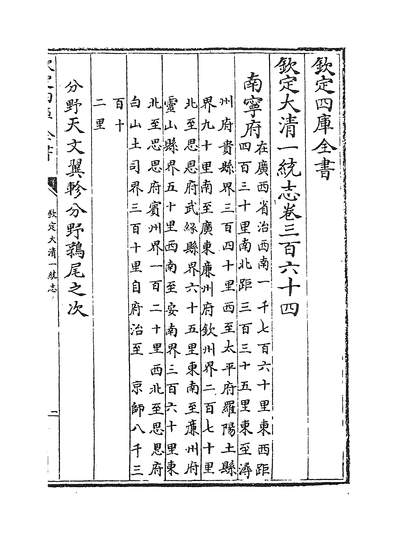 欽定四庫全書
欽定大清一統志卷三百六十四
南寧府在廣西省治西南一千七百六十里東西距
四百三十里南北距三百三十五里東至潯
州府貴縣界三百四十里西至太平府羅陽土縣
界九十里南至廣東廉州府欽州界二百七十里
北至思恩府武緣縣界六十五里東南至廉州府
靈山縣界五十里西南至安南界三百六十里東
北至思恩府賓州界一百二十里西北至思恩府
白山土司界三百十里自府治至 京師八千三
百十
二里
分野天文翼軫分野鶉尾之次
欽定大清一統志
二